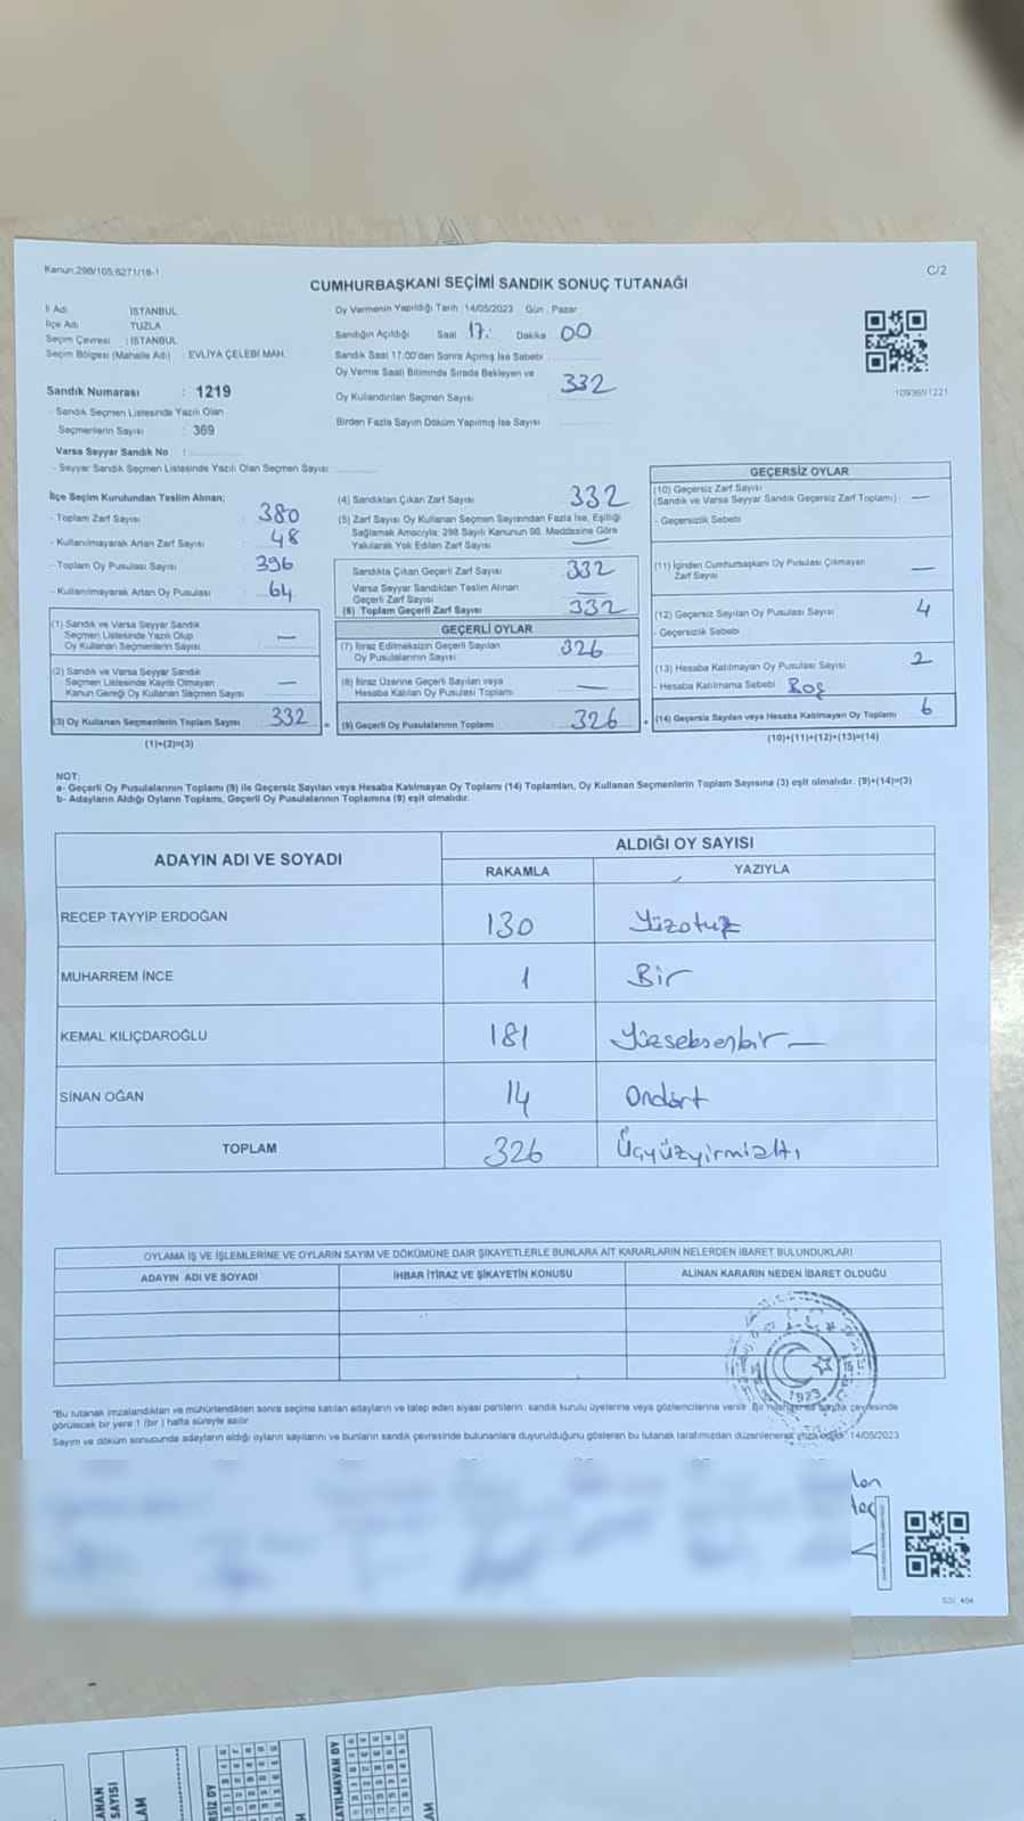 Kanun:298/105,6271/18-1
C/2
CUMHURBAŞKANI SEÇİMİ SANDIK SONUÇ TUTANAĞI
İl Adı : İSTANBUL
İlçe Adı : TUZLA
Seçim Çevresi : İSTANBUL
Seçim Bölgesi (Mahalle Adı) : EVLİYA ÇELEBİ MAH.
Sandık Numarası : 1219
- Sandık Seçmen Listesinde Yazılı Olan
Seçmenlerin Sayısı : 369
Varsa Seyyar Sandık No :
- Seyyar Sandık Seçmen Listesinde Yazılı Olan Seçmen Sayısı
Oy Vermenin Yapıldığı Tarih : 14/05/2023 Gün : Pazar
Sandığın Açıldığı Saat 17: Dakika 00
Sandık Saat 17.00'den Sonra Açmış İse Sebebi
Oy Verme Saati Bitiminde Sırada Bekleyen ve
Oy Kullandırılan Seçmen Sayısı 332
Birden Fazla Sayım Döküm Yapılmış İse Sayısı
1093691221
İlçe Seçim Kurulundan Teslim Alınan;
- Toplam Zarf Sayısı 380
- Kullanılmayarak Artan Zarf Sayısı 48
- Toplam Oy Pusulası Sayısı 396
- Kullanılmayarak Artan Oy Pusulası 64
(1) Sandık ve Varsa Seyyar Sandık
Seçmen Listesinde Yazılı Olup
Oy Kullanan Seçmenlerin Sayısı —
(2) Sandık ve Varsa Seyyar Sandık
Seçmen Listesinde Kayıtlı Olmayan
Kanun Gereği Oy Kullanan Seçmen Sayısı —
(3) Oy Kullanan Seçmenlerin Toplam Sayısı 332
(1)+(2)=(3)
(4) Sandıktan Çıkan Zarf Sayısı 332
(5) Zarf Sayısı Oy Kullanan Seçmen Sayısından Fazla İse, Eşitliği
Sağlamak Amacıyla; 298 Sayılı Kanunun 98. Maddesine Göre
Yakılarak Yok Edilen Zarf Sayısı —
Sandıkta Çıkan Geçerli Zarf Sayısı 332
Varsa Seyyar Sandıktan Teslim Alınan
Geçerli Zarf Sayısı —
(6) Toplam Geçerli Zarf Sayısı 332
GEÇERLİ OYLAR
(7) İtiraz Edilmeksizin Geçerli Sayılan
Oy Pusulalarının Sayısı 326
(8) İtiraz Üzerine Geçerli Sayılan veya
Hesaba Katılan Oy Pusulası Toplamı —
(9) Geçerli Oy Pusulalarının Toplamı 326
GEÇERSİZ OYLAR
(10) Geçersiz Zarf Sayısı
(Sandık ve Varsa Seyyar Sandık Geçersiz Zarf Toplamı) —
- Geçersizlik Sebebi
(11) İçinden Cumhurbaşkanı Oy Pusulası Çıkmayan
Zarf Sayısı —
(12) Geçersiz Sayılan Oy Pusulası Sayısı 4
- Geçersizlik Sebebi
(13) Hesaba Katılmayan Oy Pusulası Sayısı 2
- Hesaba Katılmama Sebebi Boş
(14) Geçersiz Sayılan veya Hesaba Katılmayan Oy Toplamı 6
(10)+(11)+(12)+(13)=(14)
NOT:
a- Geçerli Oy Pusulalarının Toplamı (9) ile Geçersiz Sayılan veya Hesaba Katılmayan Oy Toplamı (14) Toplamları, Oy Kullanan Seçmenlerin Toplam Sayısına (3) eşit olmalıdır. (9)+(14)=(3)
b- Adayların Aldığı Oyların Toplamı, Geçerli Oy Pusulalarının Toplamına (9) eşit olmalıdır.
ADAYIN ADI VE SOYADI
ALDIĞI OY SAYISI
RAKAMLA YAZIYLA
RECEP TAYYİP ERDOĞAN 130 Yüzotuz
MUHARREM İNCE 1 Bir
KEMAL KILIÇDAROĞLU 181 Yüzseksenbir —
SİNAN OĞAN 14 Ondört
TOPLAM 326 Üçyüzyirmialtı
OYLAMA İŞ VE İŞLEMLERİNE VE OYLARIN SAYIM VE DÖKÜMÜNE DAİR ŞİKAYETLERLE BUNLARA AİT KARARLARIN NELERDEN İBARET BULUNDUKLARI
ADAYIN ADI VE SOYADI İHBAR İTİRAZ VE ŞİKAYETİN KONUSU ALINAN KARARIN NEDEN İBARET OLDUĞU
1923
"Bu tutanak imzalandıktan ve mühürlendikten sonra seçime katılan adayların ve talep eden siyasi partilerin sandık kurulu üyelerine veya gözlemcilerine verilir. Bir sandık çevresinde
görülecek bir yere 1 (bir) hafta süreyle asılır.
Sayım ve döküm sonucunda adayların aldığı oyların sayılarını ve bunların sandık çevresinde bulunanlara duyurulduğunu gösteren bu tutanak tarafımızdan düzenlenerek 14/05/2023
SAYISI